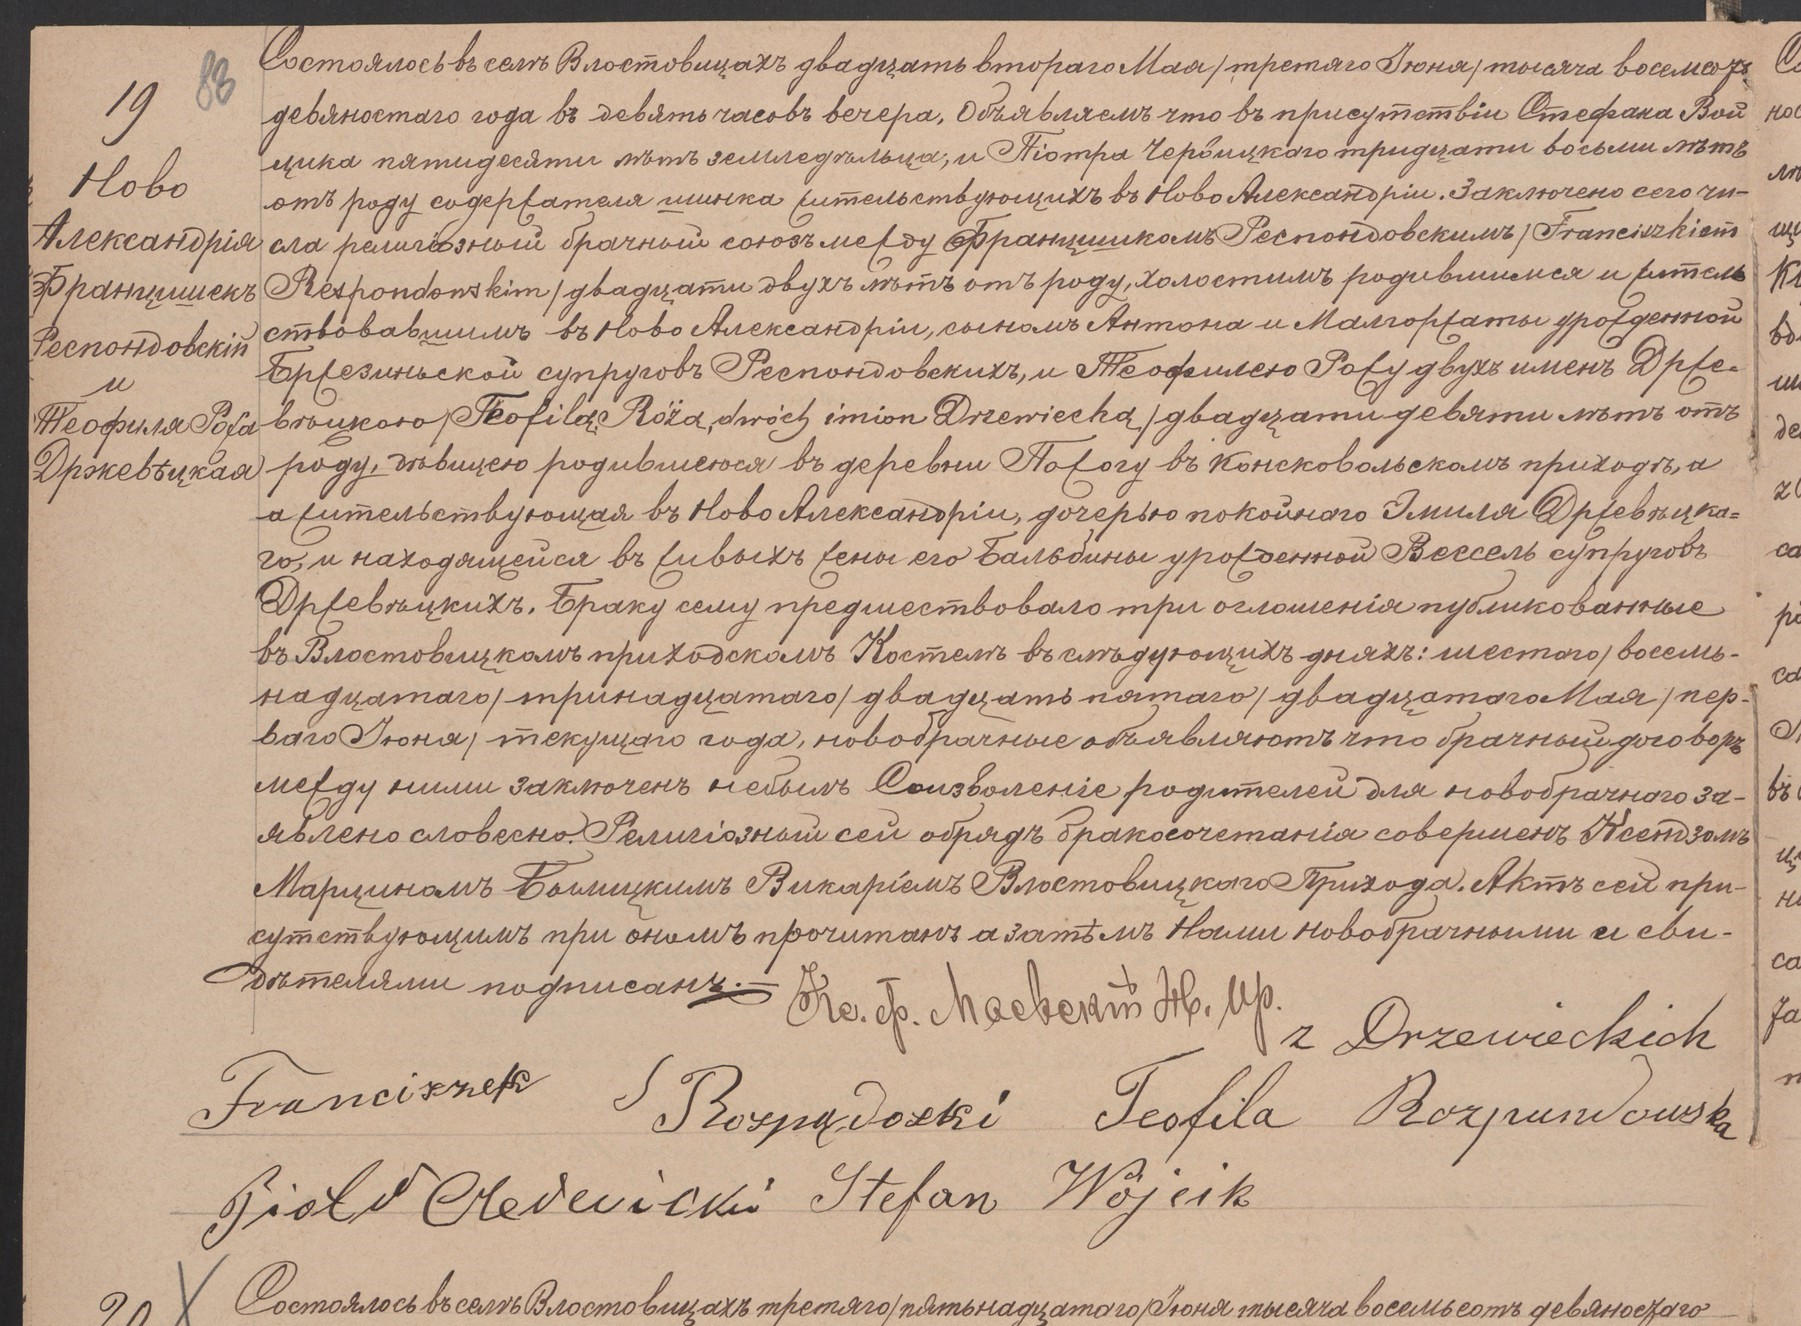 19 83
Ново
Александрія
Францишекъ
Респондовскій
и
Теофиля Рожа
Држевѣцкая
Состоялось въ селѣ Влостовицахъ двадцать втораго Мая/третяго Іюня/тысяча восемсотъ
девяностаго года въ девять часовъ вечера. Объявляемъ что въ присутствіи Стефана Вой
цика пятидесяти лѣтъ земледѣльца, и Піотра Червицкаго тридцати восьми лѣтъ
отъ роду содержателя шинка жительствующихъ въ Ново Александріи. Заключено сего чи-
сла религіозный брачный союзъ между Францишкомъ Респондовскимъ/Franciszkiem
Respondowskim/двадцати двухъ лѣтъ отъ роду, холостымъ родившимся и житель
ствовавшимъ въ Ново Александріи, сыномъ Антона и Малгоржаты урожденной
Бржезиньской супруговъ Респондовскихъ, и Теофилею Рожу двухъ именъ Држе-
вѣцкою/Teofilą, Różą, dwóch imion Drzewiecką/двадцати девяти лѣтъ отъ
роду, дѣвицею родившеюся въ деревни Пожогу въ Консковольскомъ приходѣ, а
а жительствующая въ Ново Александріи, дочерью покойнаго Эмиля Држевѣцка=
го, и находящейся въ живыхъ жены его Бальбины урожденной Вессель супруговъ
Држевѣцкихъ. Браку сему предшествовало три оглошенія публикованные
въ Влостовицкомъ приходскомъ Костелѣ въ слѣдующихъ дняхъ: шестаго/восемь-
надцатаго/тринадцатаго/двадцать пятаго/двадцатаго Мая/пер-
ваго Іюня/текущаго года, новобрачные объявляютъ что брачный договоръ
между ними заключенъ небылъ Соизволеніе родителей для новобрачнаго за-
явлено словесно. Религіозный сей обрядъ бракосочетанія совершенъ Ксендзомъ
Марциномъ Викаріемъ Влостовицкаго Прихода. Актъ сей при-
сутствующимъ при ономъ прочитанъ а затѣмъ Нами новобрачными и сви-
дѣтелями подписанъ.—
Кс. Ф. Маевскій Н. Пр.
z Drzewieckich
Franciszek Rospądoski Teofila Rozpundowska
Stefan Wójcik
20 Состоялось въ селѣ Влостовицахъ третяго/пятьнадцатаго/Іюня тысяча восемьсотъ девяностаго